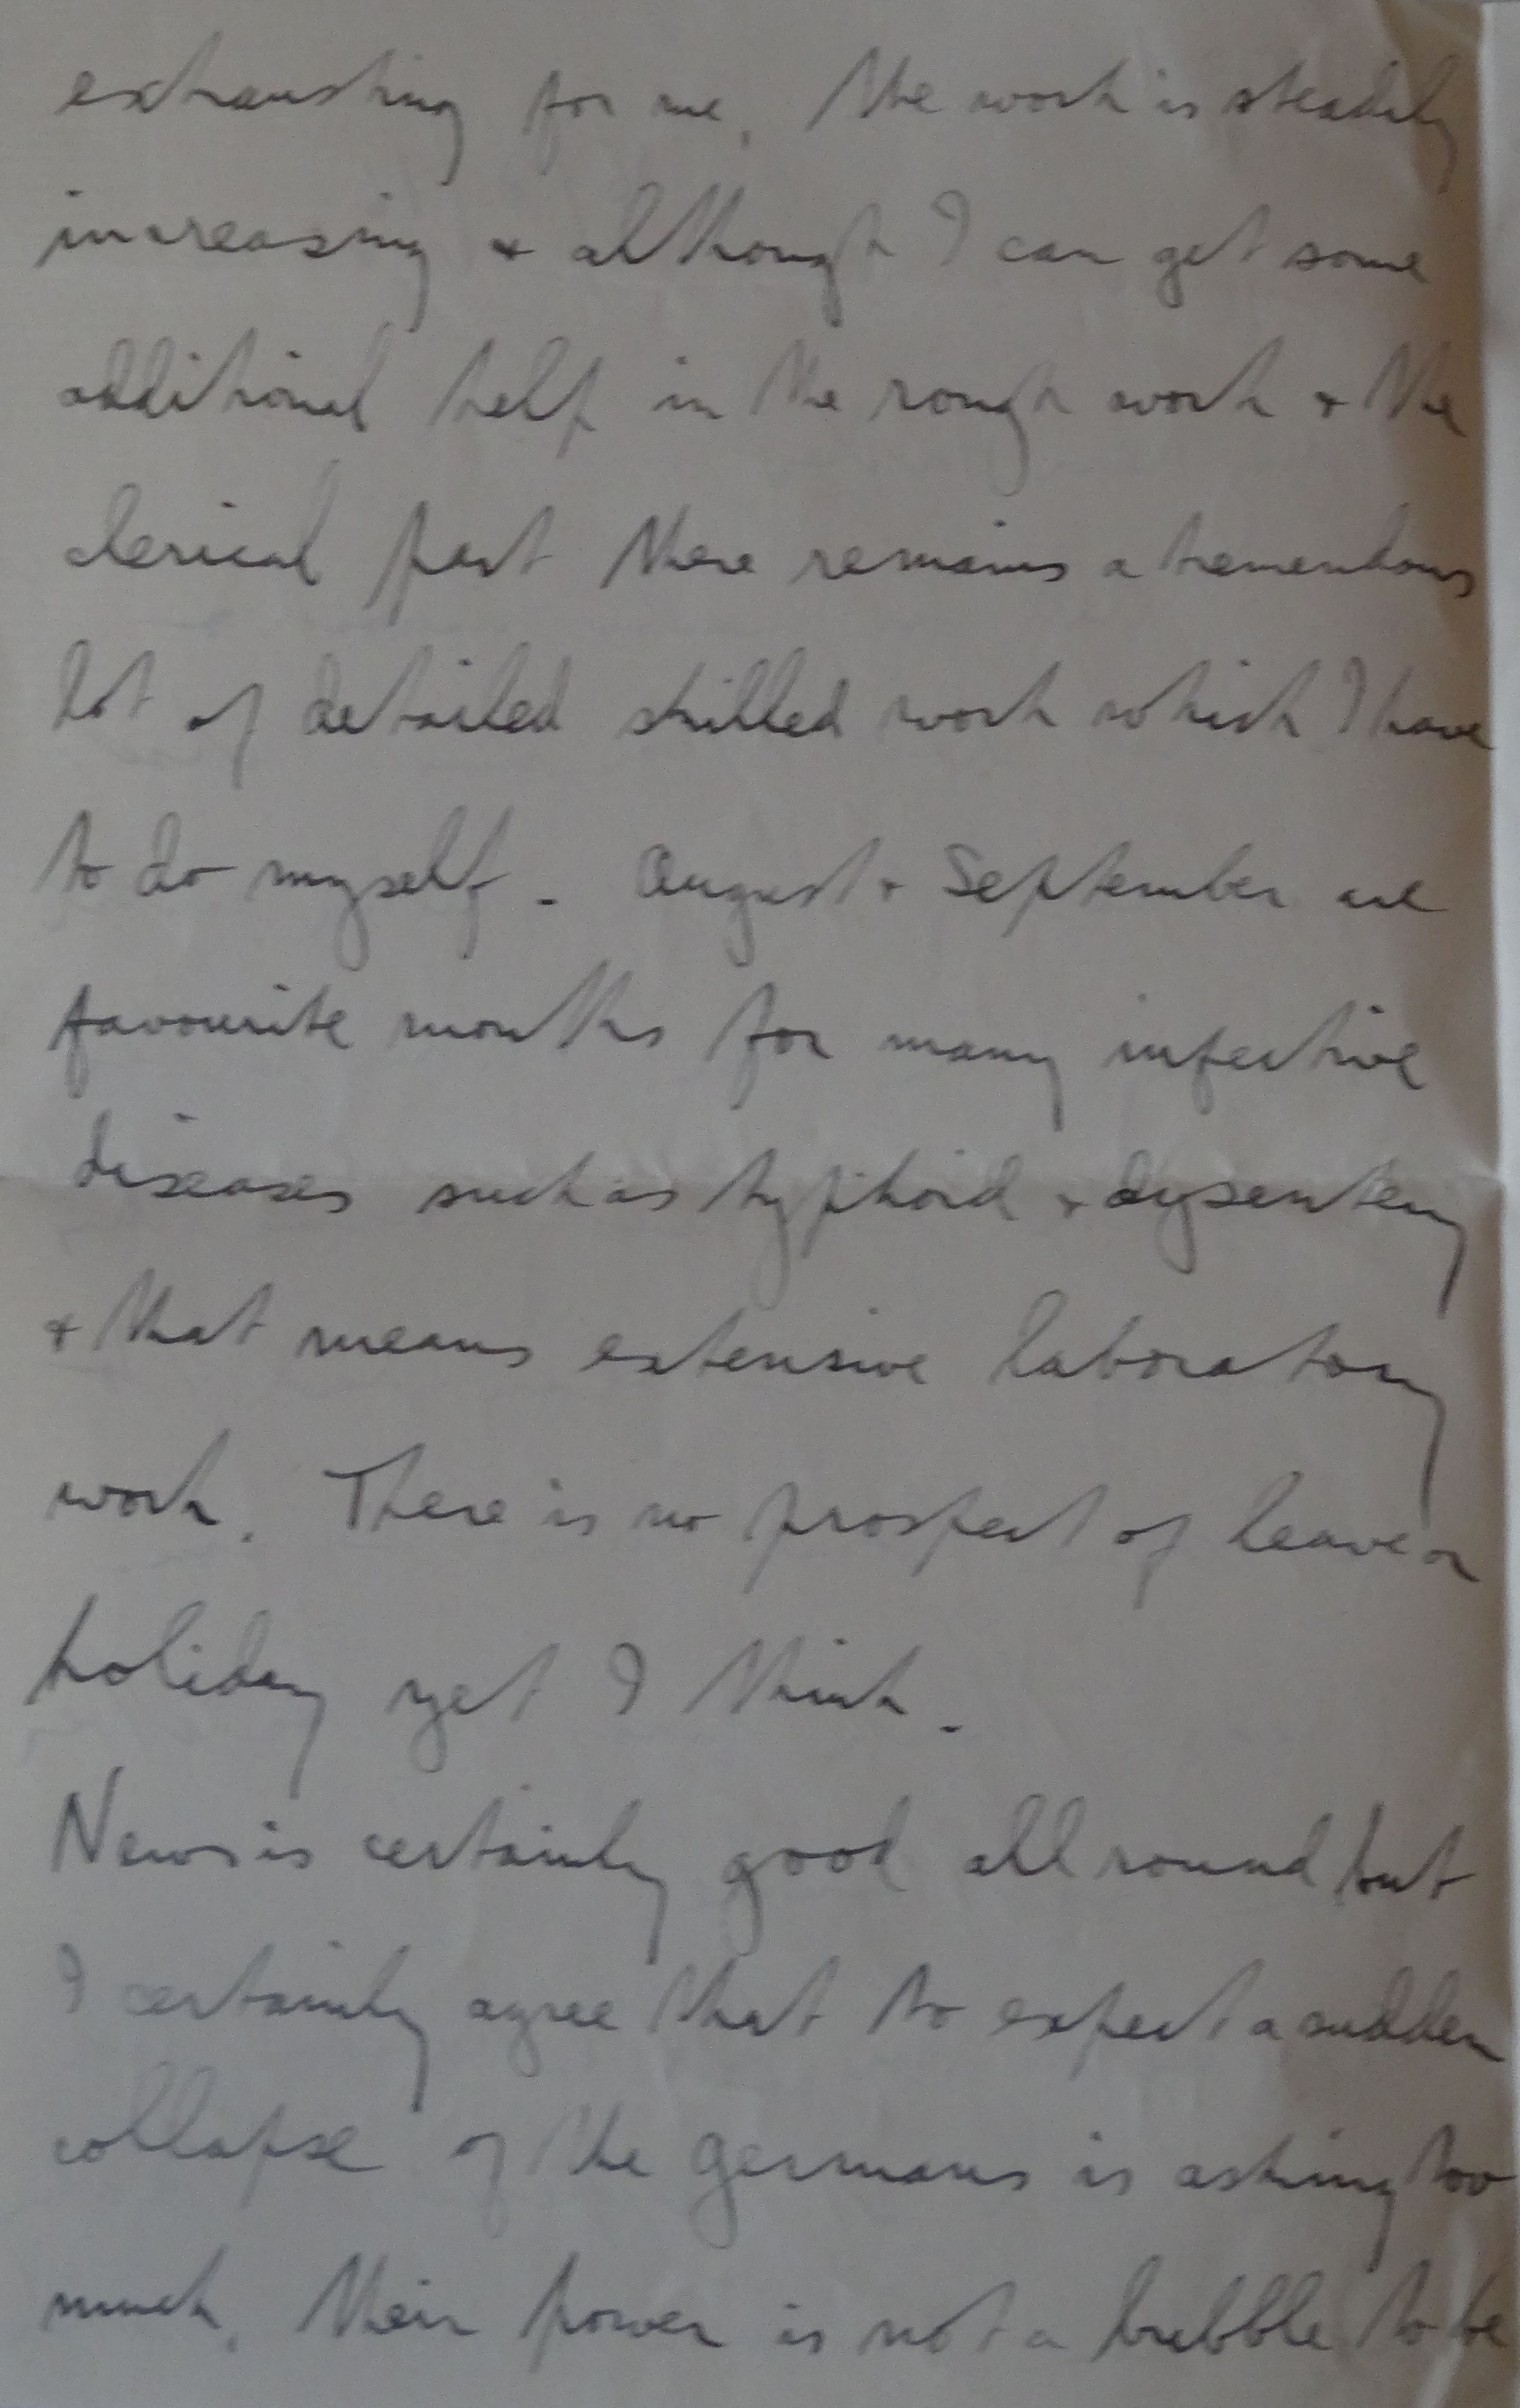 exhausting for me. The work is steadily
increasing + although I can get some
additional help in the rough work + the
clerical part there remains a tremendous
lot of detailed skilled work which I have
to do myself. August + September are
favourite months for many infective
diseases such as typhoid + dysentery
+ that means extensive laboratory
work. There is no prospect of leave or
holiday yet I think.
News is certainly good all round but
I certainly agree that to expect a sudden
collapse of the germans is asking too
much. Their power is not a bubble to be